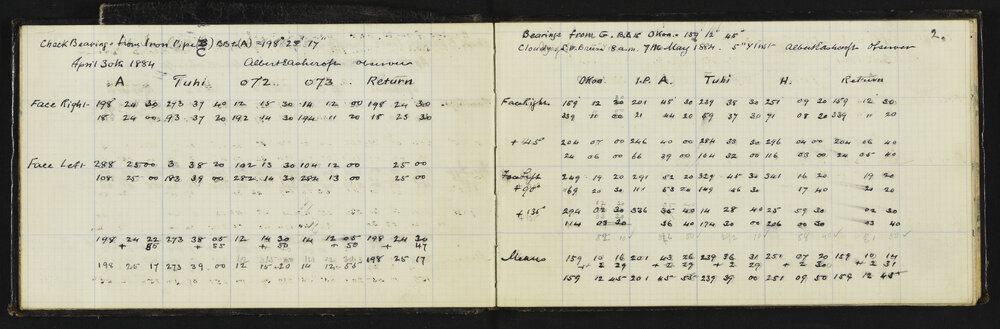 Check Bearings from Iron Pipe () BB to (A) = 198° 25' 17"
April 30th 1884 Albert Ashcroft observer
A Tuhi 072 073 Return
Face Right 198 24 30 273 37 40 12 15 30 14 12 00 198 24 30
18 24 00 93 37 20 192 14 30 194 11 20 18 25 30
Face Left 288 25 00 3 38 20 102 13 30 104 12 00 25 00
108 25 00 183 39 00 282 14 30 284 13 00 25 00
198 24 22 273 38 05 12 14 30 14 12 05 198 24 30
+ 55 + 55 + 50 + 50 + 47
198 25 17 273 39 00 12 15 20 14 12 55 198 25 17
2.
Bearings from G. BB to Okoa = 159° 12' 45"
Cloudy, 8 am. 7th May 1884. 5" Y Inst Albert Ashcroft Observer
Okoa I.P. A. Tuhi H. Return
Face Right 159 12 30 201 45 30 239 38 30 251 09 20 159 12 30
339 11 00 21 44 20 59 37 30 71 08 20 339 11 20
+ 45° 204 07 00 246 40 00 284 33 30 296 04 00 204 06 40
24 06 00 66 39 00 104 32 00 116 03 00 24 05 40
Face Left 249 19 20 291 52 20 329 45 30 341 16 20 19 20
+ 90° 69 20 30 111 53 20 149 46 30 17 40 20 20
+ 135° 294 02 30 336 35 40 14 28 40 25 59 30 02 30
114 03 20 36 40 194 30 00 206 00 30 03 40
Means 159 10 16 201 43 26 239 36 31 251 07 20 159 10 14
+ 2 29 + 2 29 + 2 29 + 2 30 + 2 31
159 12 45 201 45 55 239 39 00 251 09 50 159 12 45